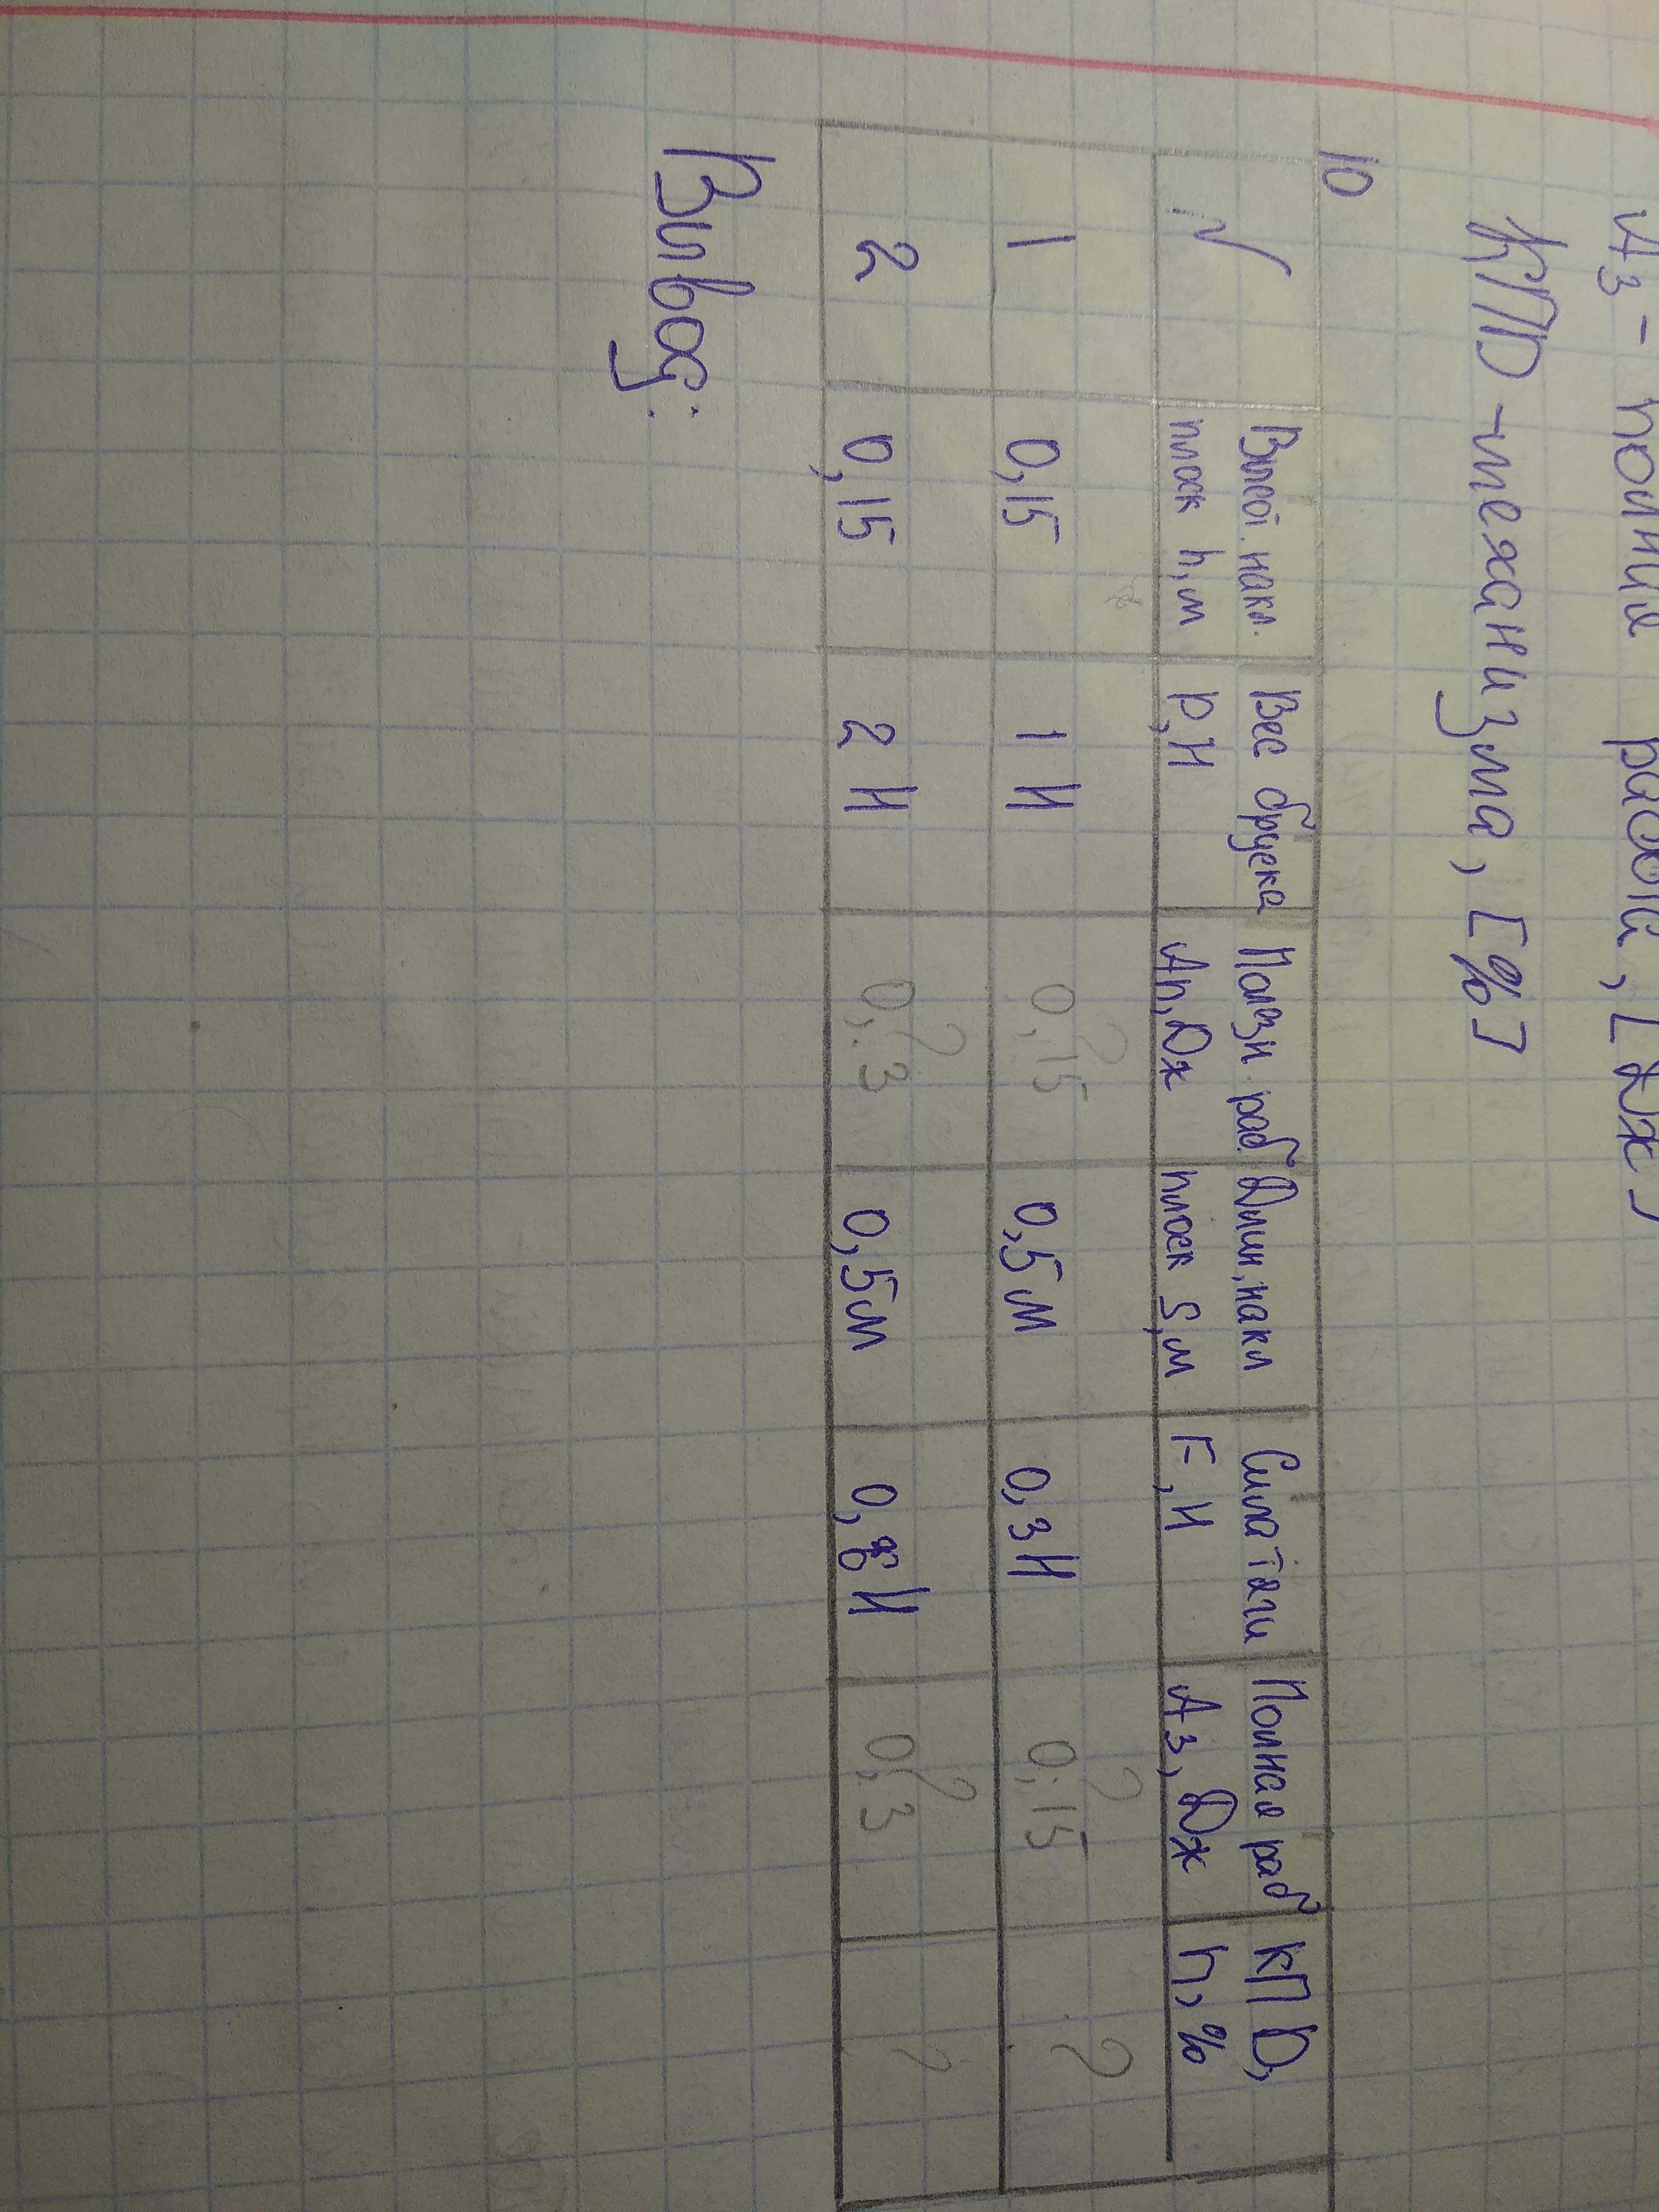 Аз - полная работа, [Дж]
КПД - механизма, [%]
10
№ Высот. накл. плоск h, м Вес бруска P, Н Полезн раб Ап, Дж Длин, накл плоск S, м Сила тяги F, Н Полная раб Аз, Дж КПД, η, %
1 0,15 1 Н ? 0,15 0,5 м 0,3 Н ? 0,15 ?
2 0,15 2 Н ? 0,3 0,5 м 0, Н ? 0,3 ?
Вывод: